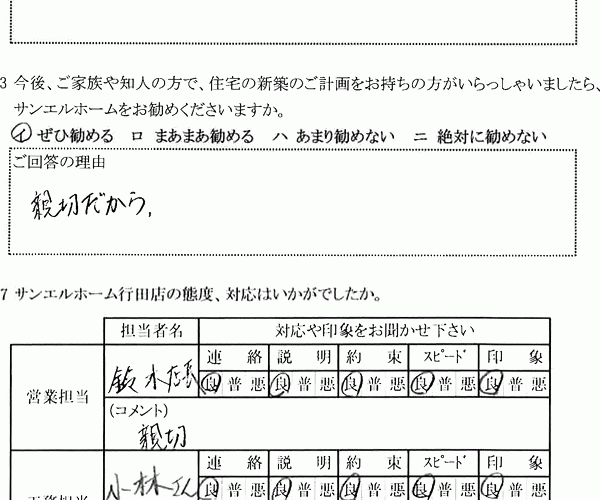 3 今後、ご家族や知人の方で、住宅の新築のご計画をお持ちの方がいらっしゃいましたら、
サンエルホームをお勧めくださいますか。
イ ぜひ勧める ロ まあまあ勧める ハ あまり勧めない ニ 絶対に勧めない
ご回答の理由
親切だから,
7 サンエルホーム行田店の態度、対応はいかがでしたか。
担当者名 対応や印象をお聞かせ下さい
営業担当 鈴木店長 連絡 説明 約束 スピード 印象
良 普 悪 良 普 悪 良 普 悪 良 普 悪 良 普 悪
(コメント)
親切
工務担当 小林さん 連絡 説明 約束 スピード 印象
良 普 悪 良 普 悪 良 普 悪 良 普 悪 良 普 悪